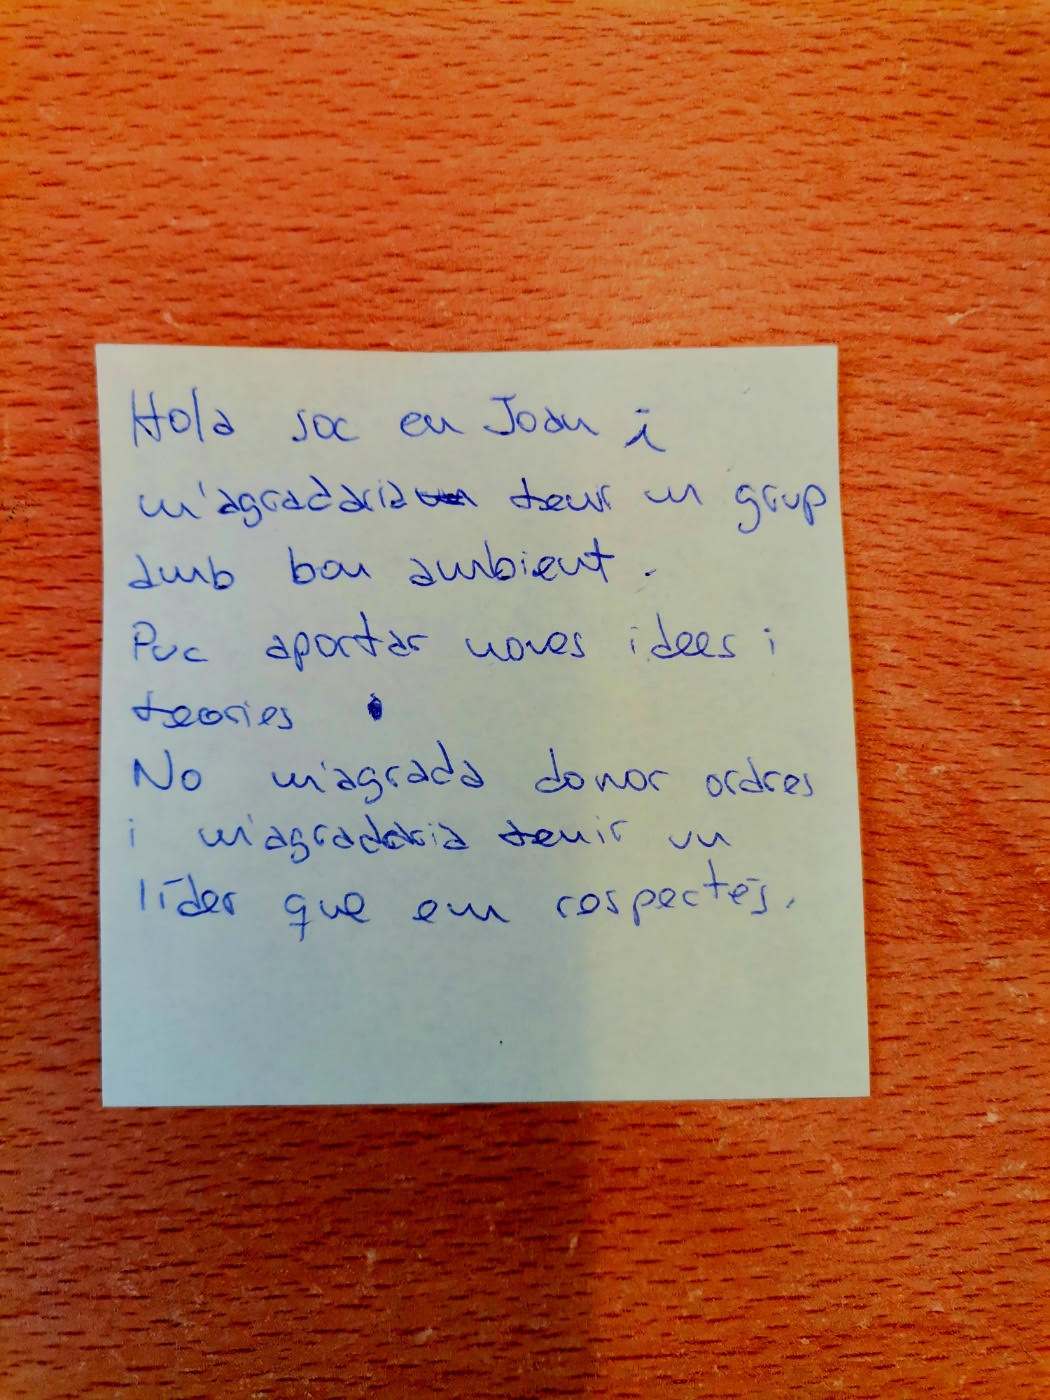 Hola soc en Joan i
m'agradaria tenir un grup
amb bon ambient.
Puc aportar noves idees i
teories
No m'agrada donar ordres
i m'agradaria tenir un
líder que em respectés.